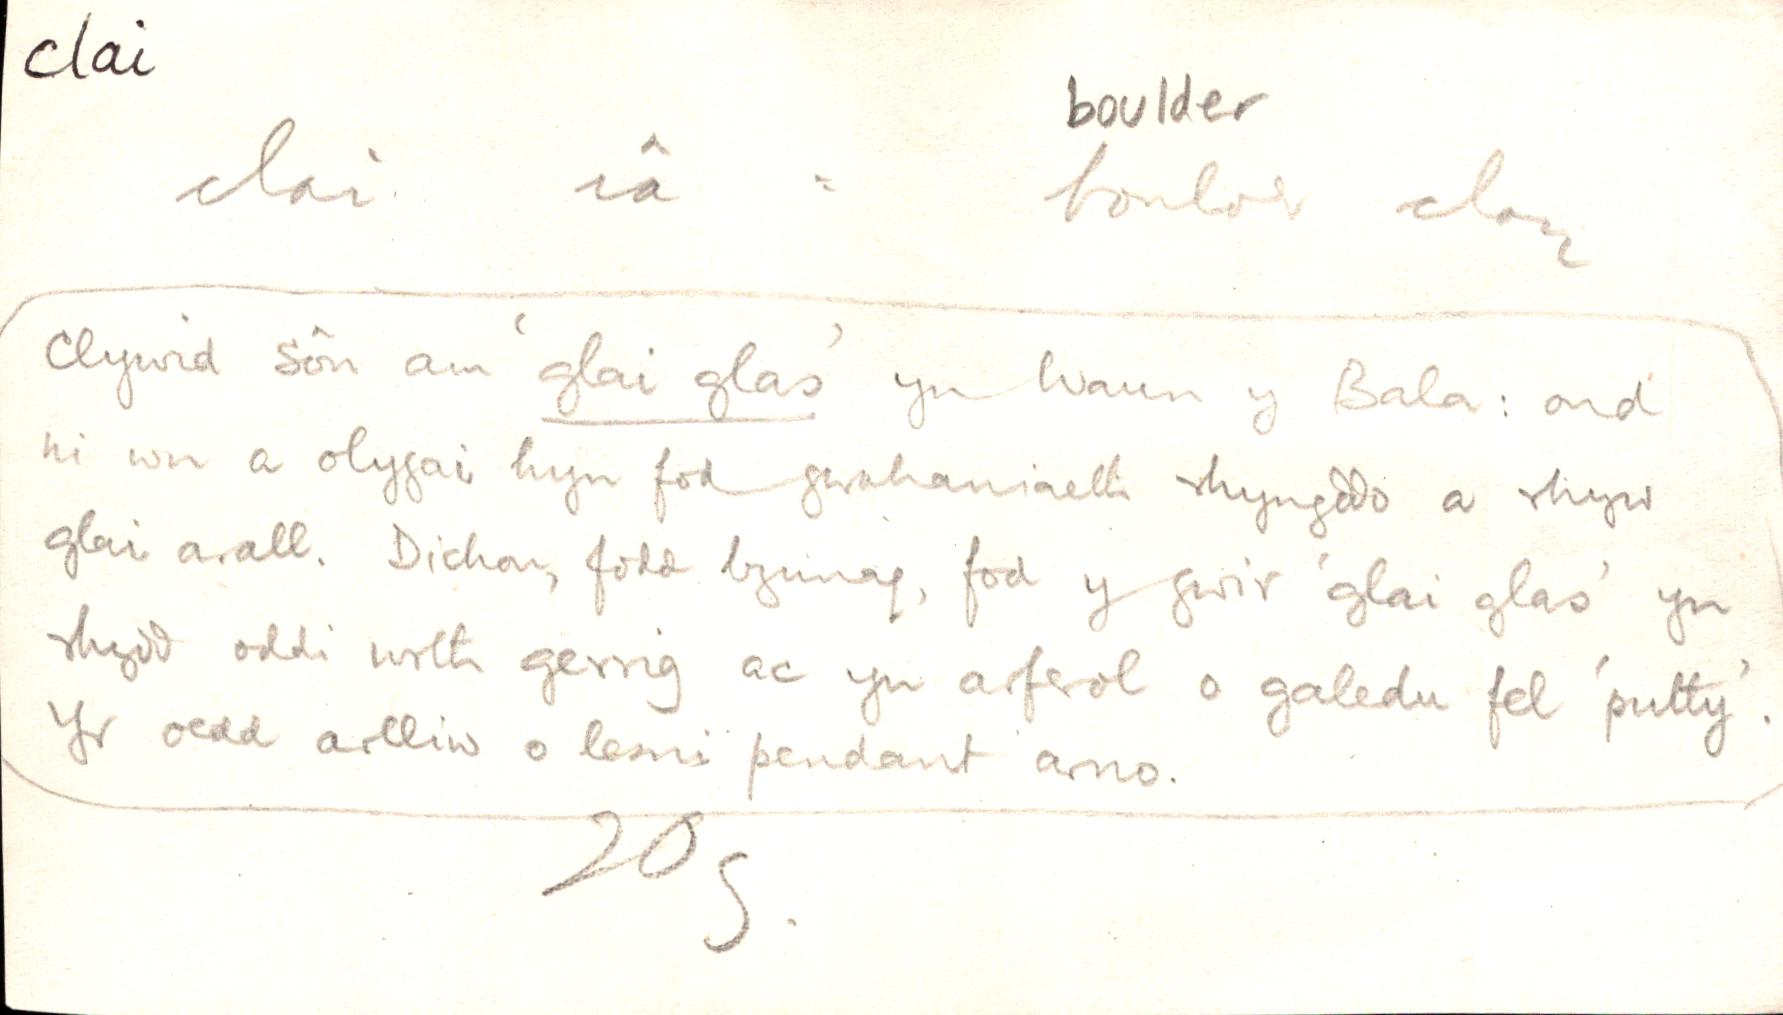 clai
boulder
clai iâ = boulder clay
Clywid sôn am 'glai glas' yn Waun y Bala: ond
ni wn a olygai hyn fod gwahaniaeth rhyngddo a rhyw
glai arall. Dichon, fodd bynnag, fod y gwir 'glai glas' yn
rhydd oddi wrth gerrig ac yn arferol o galedu fel 'putty'.
Yr oedd arlliw o lesni pendant arno.
20g.